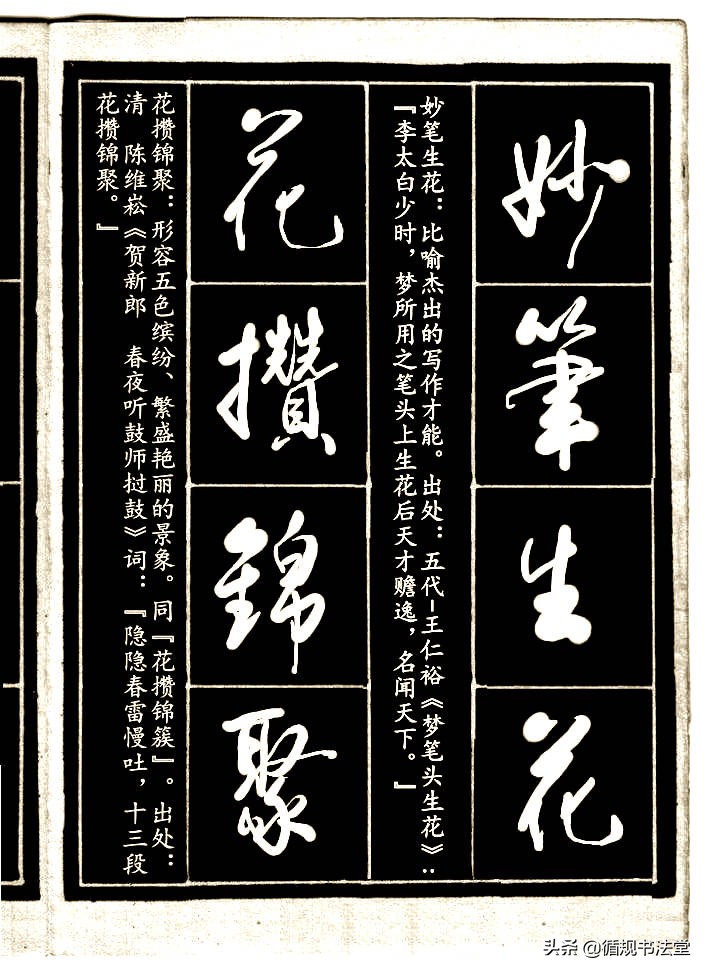 妙筆生花
妙笔生花：比喻杰出的写作才能。出处：五代-王仁裕《梦笔头生花》：
『李太白少时，梦所用之笔头上生花后天才赡逸，名闻天下。』
花攢錦聚
花攒锦聚：形容五色缤纷、繁盛艳丽的景象。同『花攒锦簇』。出处：
清 陈维崧《贺新郎 春夜听鼓师挝鼓》词：『隐隐春雷慢吐，十三段
花攒锦聚。』
头条 @循规书法堂